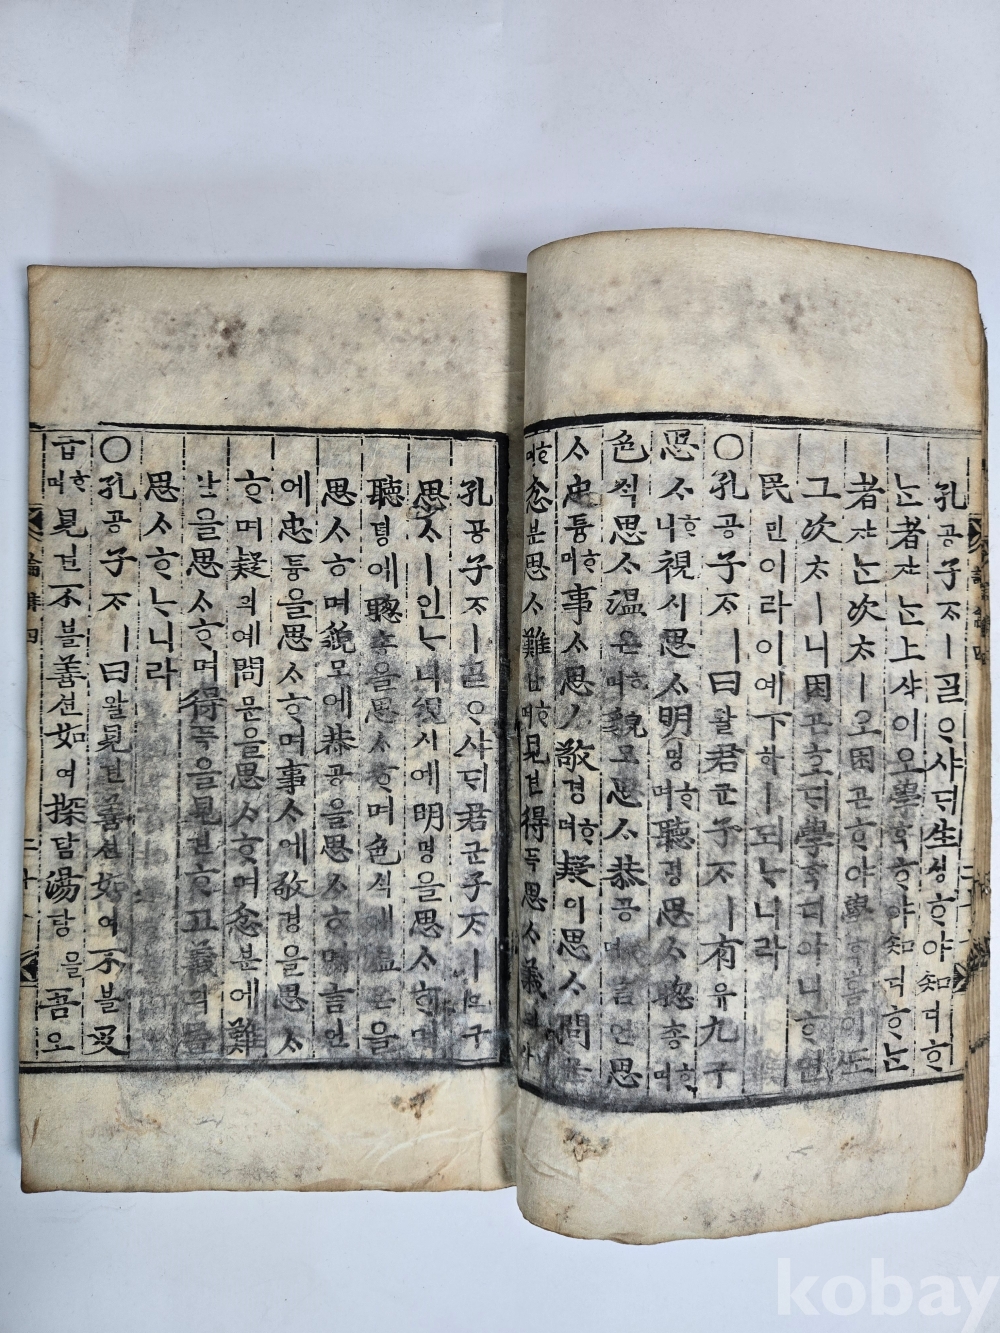 孔공子ᄌᆞㅣᄀᆞᆯᄋᆞ샤ᄃᆡ生ᄉᆡᆼᄒᆞ야知디ᄒᆞ
ᄂᆞᆫ者쟈ᄂᆞᆫ上샹이오學ᄒᆞᆨᄒᆞ야知디ᄒᆞᄂᆞᆫ
者쟈ᄂᆞᆫ次ᄎᆞㅣ오困곤ᄒᆞ야學ᄒᆞᆨ홈이ᄯᅩ
그次ᄎᆞㅣ니困곤호ᄃᆡ學ᄒᆞᆨ디아니ᄒᆞ면
民민이라이예下하ㅣ되ᄂᆞ니라
○孔공子ᄌᆞㅣ曰왈君군子ᄌᆞㅣ有유九구
思ᄉᆞᄒᆞ니視시思ᄉᆞ明명ᄒᆞ며聽텽思ᄉᆞ聰총ᄒᆞ며
色ᄉᆡᆨ思ᄉᆞ溫온ᄒᆞ며貌모思ᄉᆞ恭공ᄒᆞ며言언思
ᄉᆞ忠튱ᄒᆞ며事ᄉᆞ思ᄉᆞ敬경ᄒᆞ며疑의思ᄉᆞ問문
ᄒᆞ며忿분思ᄉᆞ難난ᄒᆞ며見견得득思ᄉᆞ義의
孔공子ᄌᆞㅣᄀᆞᆯᄋᆞ샤ᄃᆡ君군子ᄌᆞㅣ구
思ᄉᆞㅣ인ᄂᆞ니視시예明명을思ᄉᆞᄒᆞ며
聽텽에聰총을思ᄉᆞᄒᆞ며色ᄉᆡᆨ에溫온을
思ᄉᆞᄒᆞ며貌모에恭공을思ᄉᆞᄒᆞ며言언
에忠튱을思ᄉᆞᄒᆞ며事ᄉᆞ에敬경을思ᄉᆞ
ᄒᆞ며疑의예問문을思ᄉᆞᄒᆞ며忿분에難
난을思ᄉᆞᄒᆞ며得득을見견ᄒᆞ고義의를
思ᄉᆞᄒᆞᄂᆞ니라
○孔공子ᄌᆞㅣ曰왈見견善션如여不불及
급ᄒᆞ며見견不불善션如여探탐湯탕을吾오
論
四
kobay